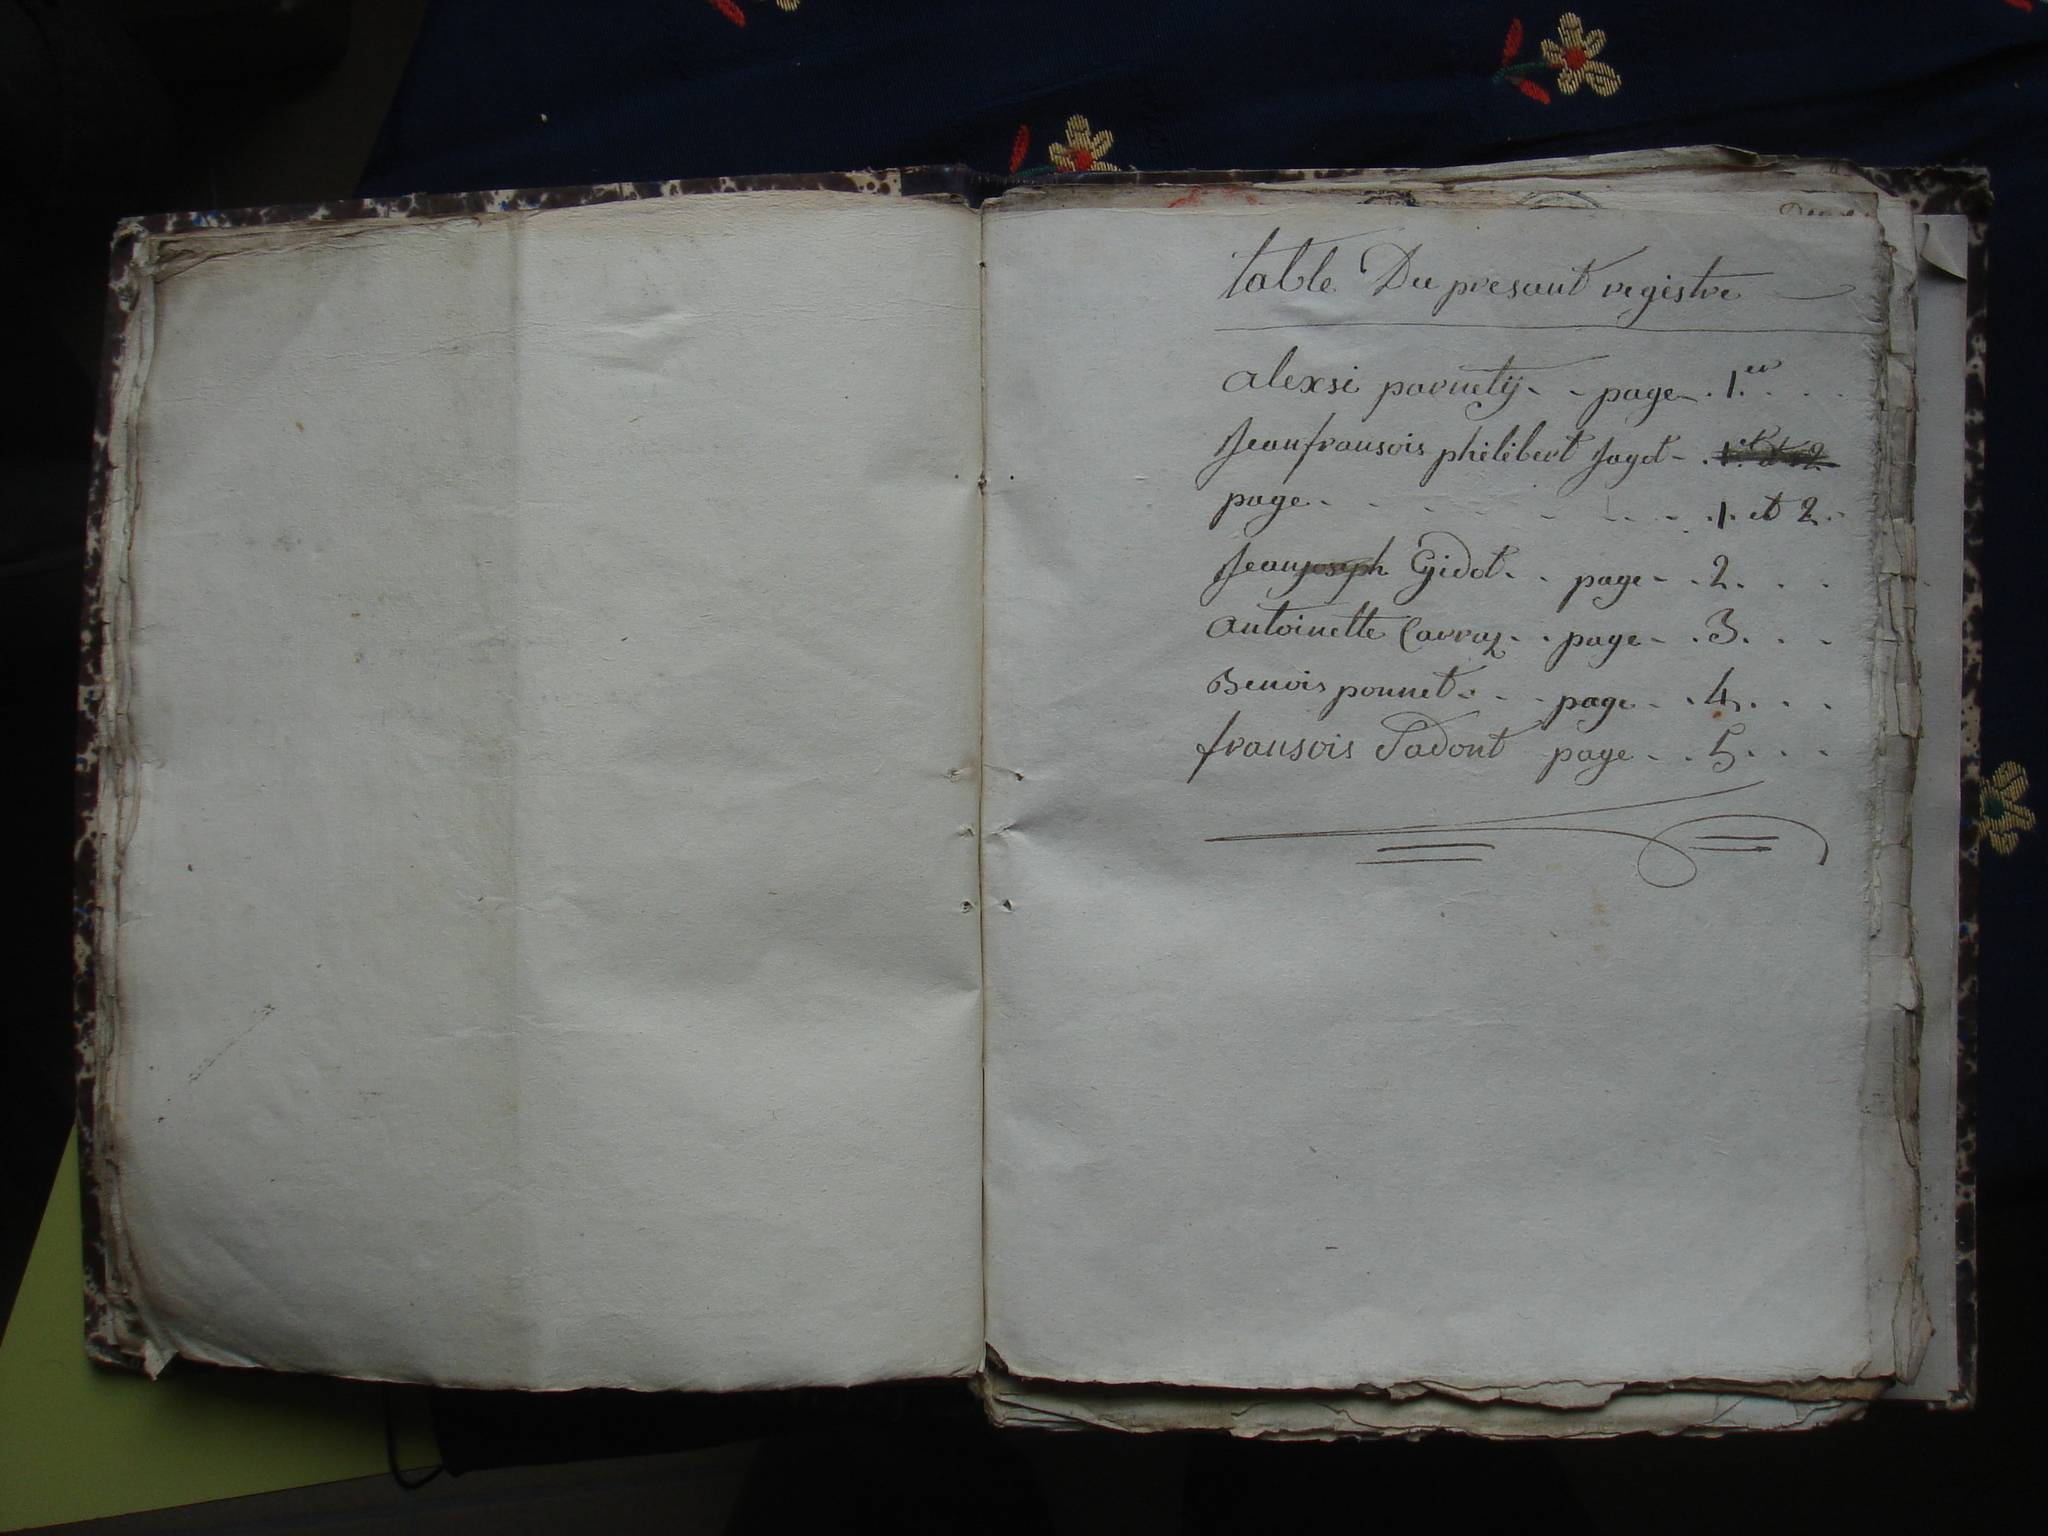 table Du presant registre
alexsi parnetij - - page - . 1.er . . .
Jeanfransois philibert Jagot - . 1.er et 2
page - - - - - - - - . 1. et 2 . -
Jeanjoseph Gidot - . page - . 2. . .
antoinette Carraz - . page - . 3. . .
Benois ponnet - - - page - . 4. . .
fransois Padont page - . 5 . . .